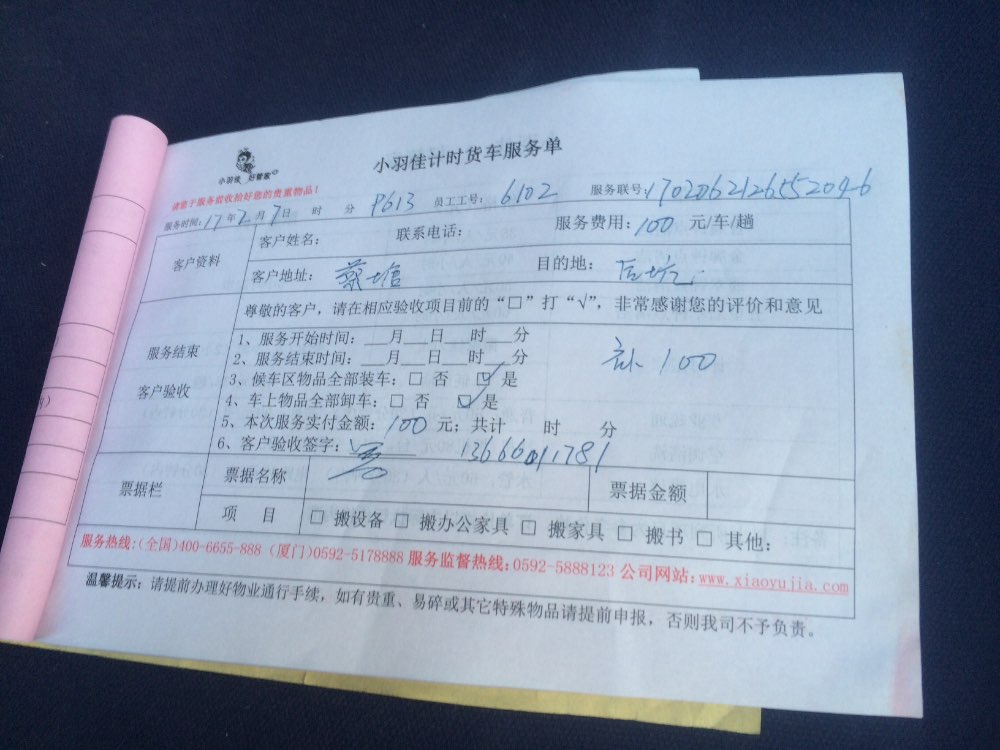 小羽佳计时货车服务单
小羽佳 好管家
请您于服务前收拾好您的贵重物品！
服务时间：17年2月7日 时 分 P613 员工工号：6102 服务联号：1702062126552046
客户资料 客户姓名： 联系电话： 服务费用：100 元/车/趟
客户地址：蔡塘 目的地：后坑
尊敬的客户，请在相应验收项目前的“□”打“√”，非常感谢您的评价和意见
服务结束
客户验收
1、服务开始时间：__月__日__时__分
2、服务结束时间：__月__日__时__分
补100
3、候车区物品全部装车：□ 否 ☑ 是
4、车上物品全部卸车：□ 否 ☑ 是
5、本次服务实付金额：100 元；共计 时 分
6、客户验收签字：
票据栏 票据名称 票据金额
项 目 □ 搬设备 □ 搬办公家具 □ 搬家具 □ 搬书 □ 其他：
服务热线：（全国）400-6655-888（厦门）0592-5178888 服务监督热线：0592-5888123 公司网站：www.xiaoyujia.com
温馨提示：请提前办理好物业通行手续，如有贵重、易碎或其它特殊物品请提前申报，否则我司不予负责。